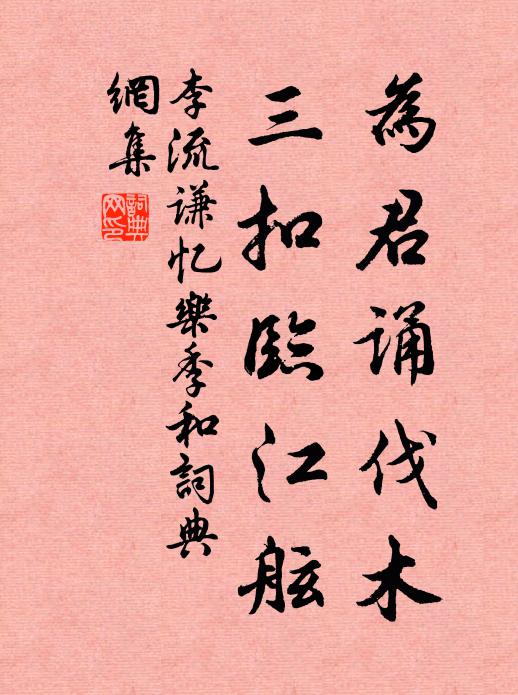 為君誦伐木
三扣臨江舷
李流謙忆樂季和詞典
網集
詞典
网印